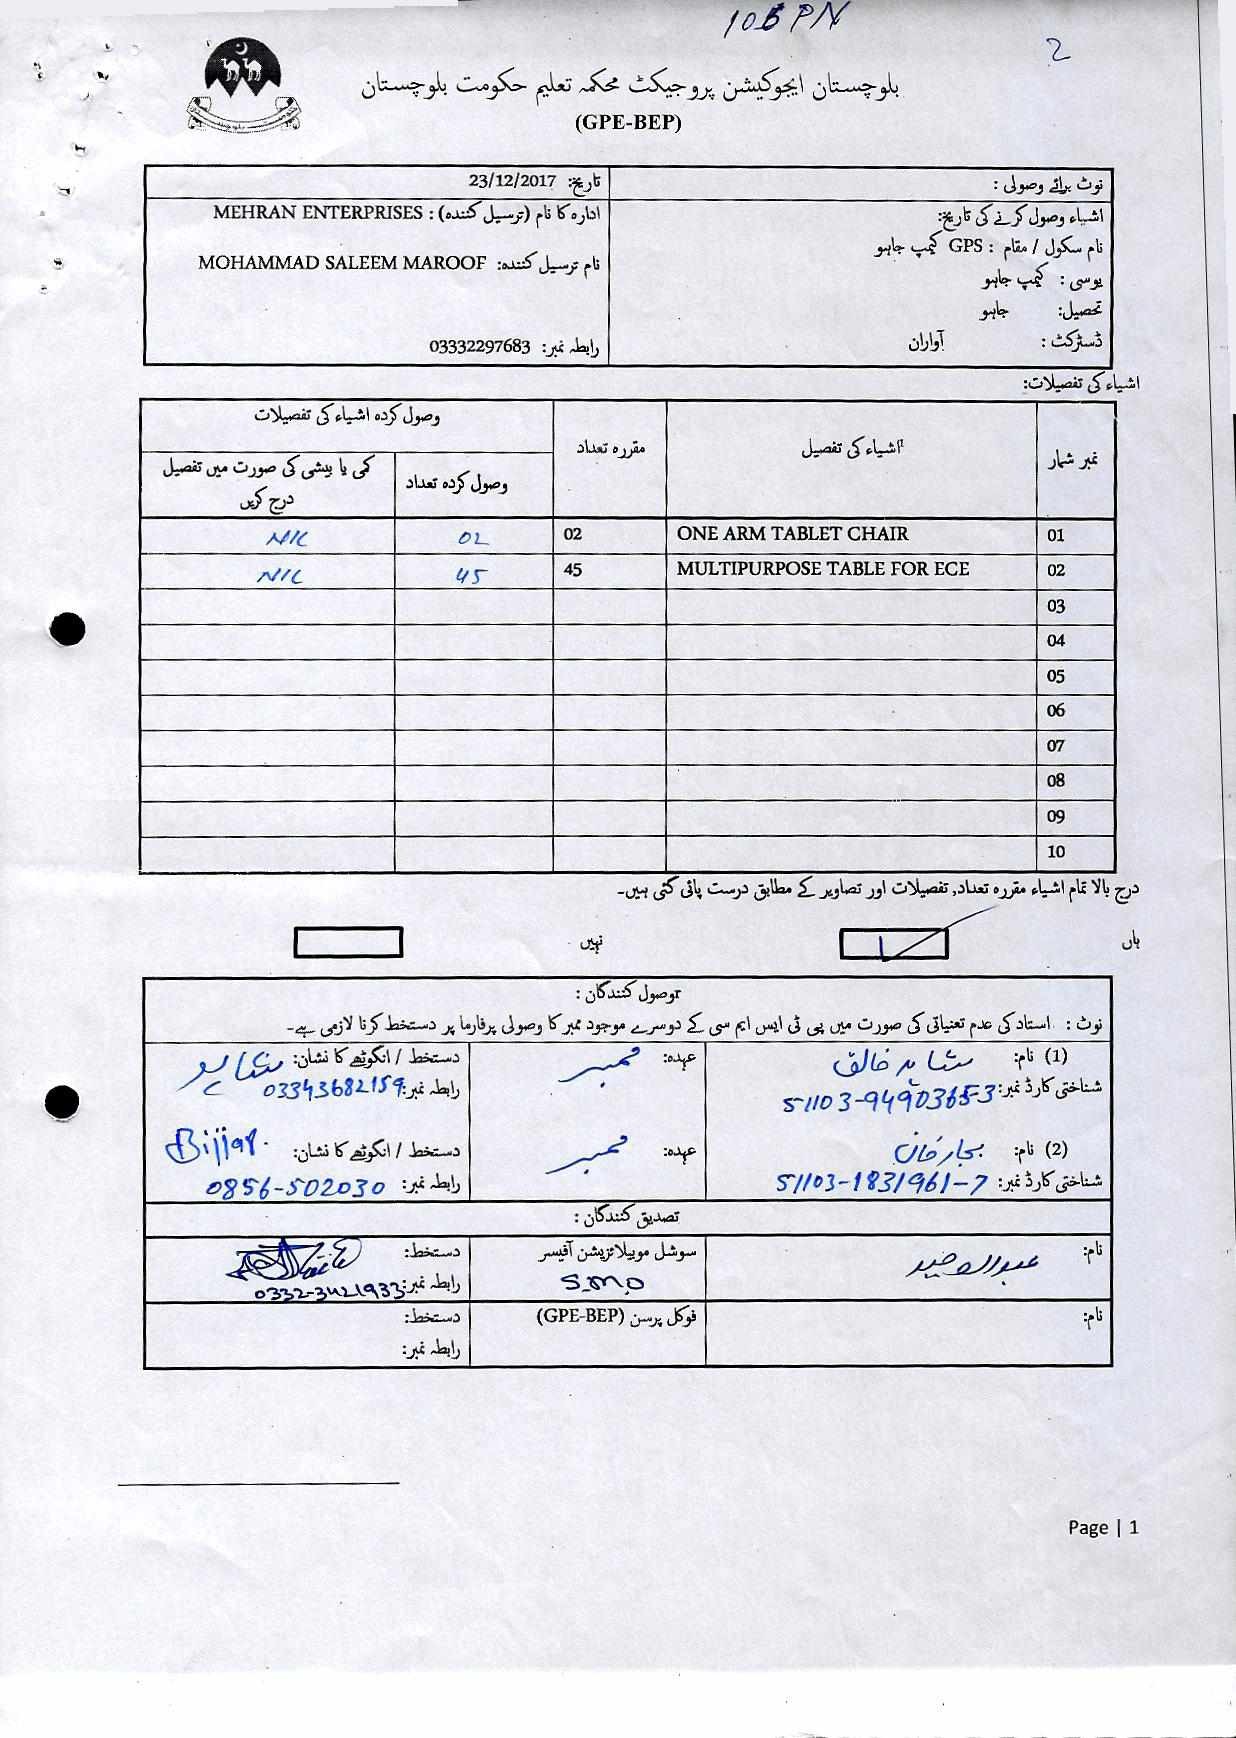 10B PN
2
بلوچستان ایجوکیشن پروجیکٹ محکمہ تعلیم حکومت بلوچستان
(GPE-BEP)
نوٹ برائے وصولی :
تاریخ: 23/12/2017
اشیاء وصول کرنے کی تاریخ:
نام سکول / مقام : GPS کیمپ جاہو
یو سی : کیمپ جاہو
تحصیل: جاہو
ڈسٹرکٹ : آواران
ادارہ کا نام (ترسیل کنندہ) : MEHRAN ENTERPRISES
نام ترسیل کنندہ: MOHAMMAD SALEEM MAROOF
رابطہ نمبر: 03332297683
اشیاء کی تفصیلات:
نمبر شمار اشیاء کی تفصیل مقررہ تعداد وصول کردہ اشیاء کی تفصیلات
وصول کردہ تعداد کمی یا بیشی کی صورت میں تفصیل
درج کریں
01 ONE ARM TABLET CHAIR 02 02 NIL
02 MULTIPURPOSE TABLE FOR ECE 45 45 NIL
03
04
05
06
07
08
09
10
درج بالا تمام اشیاء مقررہ تعداد, تفصیلات اور تصاویر کے مطابق درست پائی گئی ہیں۔
ہاں نہیں
وصول کنندگان :
نوٹ : استاد کی عدم تعنیاتی کی صورت میں پی ٹی ایس ایم سی کے دوسرے موجود ممبر کا وصولی پرفارما پر دستخط کرنا لازمی ہے۔
(1) نام: خالق عہدہ: ممبر دستخط / انگوٹھے کا نشان:
شناختی کارڈ نمبر: 51103-9490365-3 رابطہ نمبر: 03343682159
(2) نام: بجار خان عہدہ: ممبر دستخط / انگوٹھے کا نشان: Bijjar.
شناختی کارڈ نمبر: 51103-1831961-7 رابطہ نمبر: 0856-502030
تصدیق کنندگان :
نام: عبدالوحید سوشل موبیلائزیشن آفیسر دستخط:
S.M.O رابطہ نمبر: 0332-3421933
نام: فوکل پرسن (GPE-BEP) دستخط:
رابطہ نمبر:
Page | 1